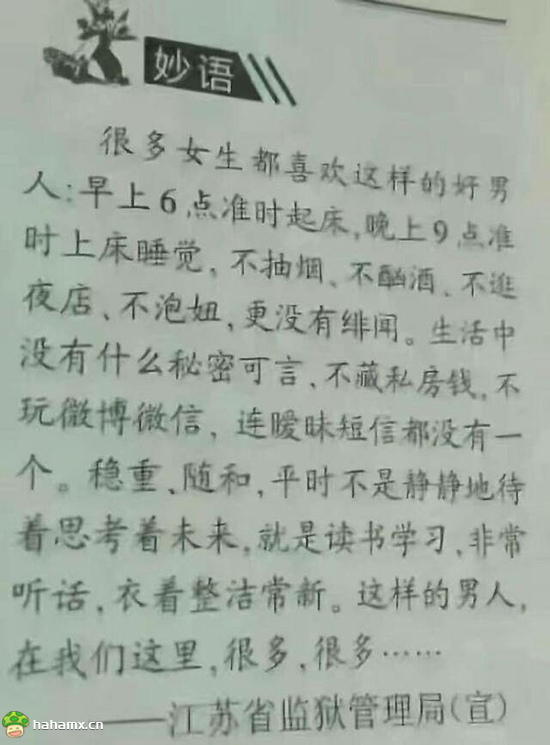 妙语
很多女生都喜欢这样的好男
人:早上6点准时起床,晚上9点准
时上床睡觉,不抽烟、不酗酒、不逛
夜店、不泡妞,更没有绯闻。生活中
没有什么秘密可言、不藏私房钱,不
玩微博微信,连暧昧短信都没有一
个。稳重、随和,平时不是静静地待
着思考着未来,就是读书学习,非常
听话,衣着整洁常新。这样的男人,
在我们这里,很多,很多……
——江苏省监狱管理局(宣)
hahamx.cn